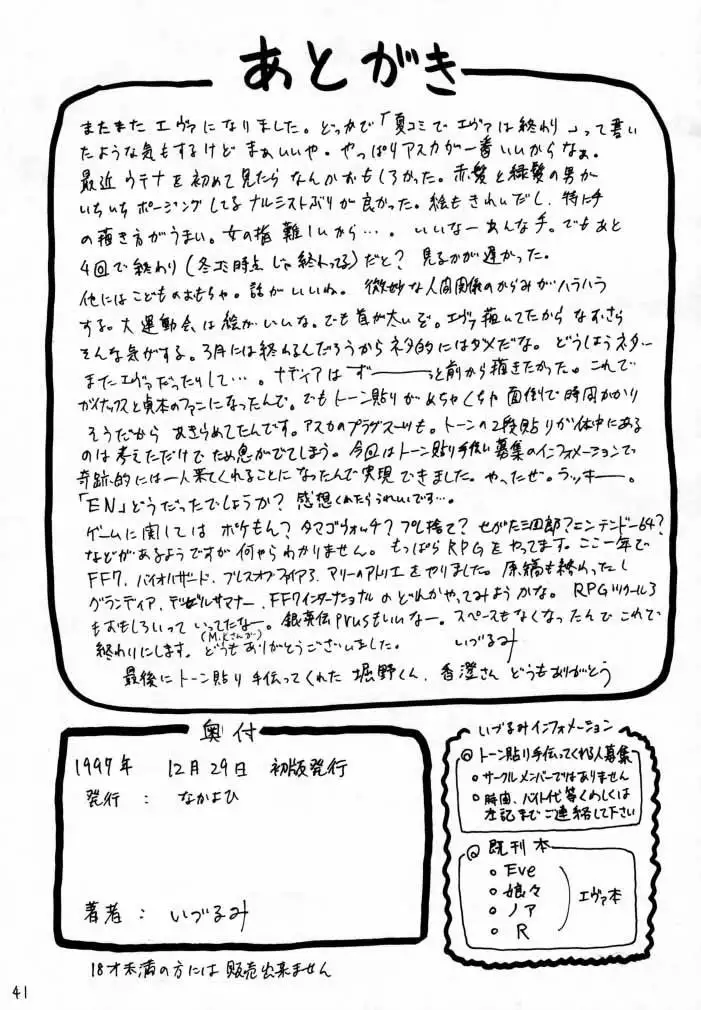 あとがき
またまたエヴァになりました。どっかで「夏コミでエヴァは終わり」って書い
たような気もするけどまぁいいや。やっぱりアスカが一番いいからなぁ。
最近ウテナを初めて見たらなんかおもしろかった。赤髪と緑髪の男が
いちいちポージングしてるナルシストぶりが良かった。絵もきれいだし、特に手
の描き方がうまい。女の指難しいから…。いいなーあんな手。でもあと
4回で終わり(冬コミ時点じゃ終わってる)だと? 見るのが遅かった。
他にはこどものおもちゃ。話がいいね。微妙な人間関係のからみがハラハラ
する。大運動会は絵がいいな。でも首が太いぞ。エヴァ描いてたからなおさら
そんな気がする。3月には終わるんだろうからネタ的にはダメだな。どうしようネター
またエヴァだったりして…。ナディアはずーーーっと前から描きたかった。これで
ガイナックスと貞本のファンになったんで。でもトーン貼りがめちゃくちゃ面倒で時間かかり
そうだからあきらめてたんです。アスカのプラグスーツも。トーンの2段貼りが体中にある
のは考えただけでため息がでてしまう。今回はトーン貼り手伝い募集のインフォメーションで
奇跡的には一人来てくれることになったんで実現できました。やったぜ。ラッキー。
「EN」どうだったでしょうか? 感想くれたらうれしいです…。
ゲームに関してはポケもん? タマゴウォッチ? プレ捨て? せがた三四郎? ニンテンドー64?
などがあるようですが何やらわかりません。もっぱらRPGをやってます。ここ一年で
FF7、バイオハザード、ブレスオブファイア3、マリーのアトリエをやりました。原稿も終わったし
グランディア、デビルサマナー、FF7インターナショナルのどれかやってみようかな。RPGツクール3
もおもしろいっていってたなー。銀英伝plusもいいなー。スペースもなくなったんでこれで
(M.Kさんが)
終わりにします。どうもありがとうございました。 いづるみ
最後にトーン貼り手伝ってくれた堀野くん、香澄さんどうもありがとう
奥付
1997年 12月29日 初版発行
発行: なかよひ
著者: いづるみ
いづるみインフォメーション
◎トーン貼り手伝ってくれる人募集
○サークルメンバーではありません
○時間、バイト代等くわしくは
左記までご連絡して下さい
◎既刊本
○Eve
○娘々
○ノア
○R
エヴァ本
18才未満の方には販売出来ません
41